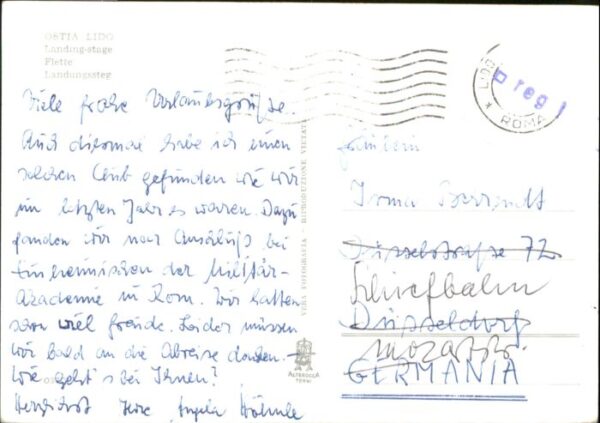 OSTIA LIDO
Landing-stage
Flette
Landungssteg
Viele frohe Urlaubsgrüße.
Auch diesmal habe ich einen
solchen Club gefunden wie wir
im letzten Jahr es waren. Dazu
fanden wir nur Anschluß bei
Einheimischen der Militär-
akademie in Rom. Wir hatten
schon viel Freude. Leider müssen
wir bald an die Abreise denken.
Wie geht's bei Ihnen?
Herzlichst Ihre Angela
LIDO
ROMA
reg
VERA FOTOGRAFIA - RIPRODUZIONE VIETATA
ALTEROCCA
TERNI
Fräulein
Irma
Düsselstraße 72
Schiefbahn
Düsseldorf
Mozartstr.
GERMANIA